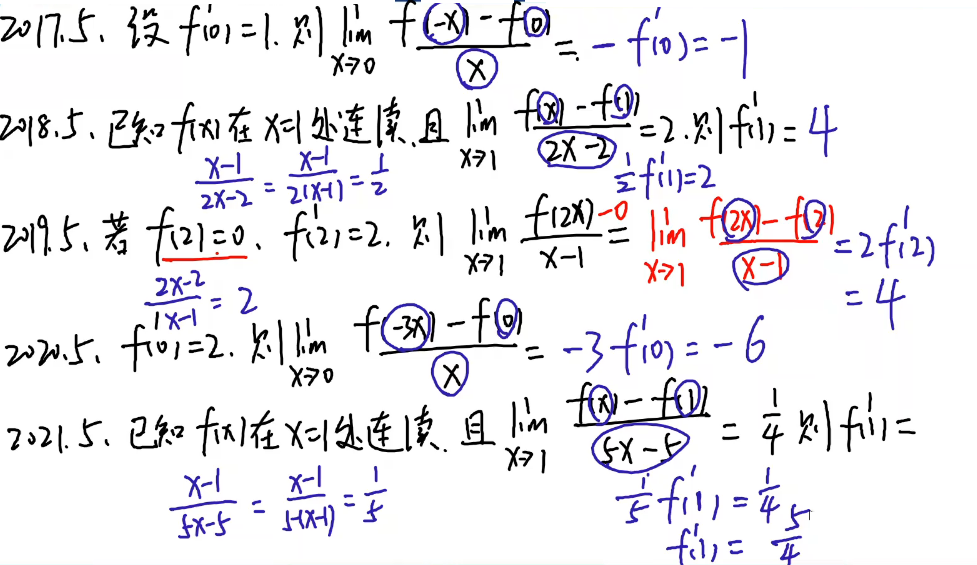 2017.5. 设 f'(0)=1. 则 lim x→0 (f(-x)-f(0))/x = -f'(0) = -1
2018.5. 已知 f(x) 在 x=1 处连续, 且 lim x→1 (f(x)-f(1))/(2x-2) = 2. 则 f'(1) = 4
(x-1)/(2x-2) = (x-1)/(2(x-1)) = 1/2
1/2 f'(1) = 2
2019.5. 若 f(2)=0. f'(2)=2. 则 lim x→1 (f(2x)-0)/(x-1) = lim x→1 (f(2x)-f(2))/(x-1) = 2f'(2)
= 4
(2x-2)/(1x-1) = 2
2020.5. f'(0)=2. 则 lim x→0 (f(-3x)-f(0))/x = -3f'(0) = -6
2021.5. 已知 f(x) 在 x=1 处连续. 且 lim x→1 (f(x)-f(1))/(5x-5) = 1/4 则 f'(1) =
(x-1)/(5x-5) = (x-1)/(5(x-1)) = 1/5
1/5 f'(1) = 1/4
f'(1) = 5/4